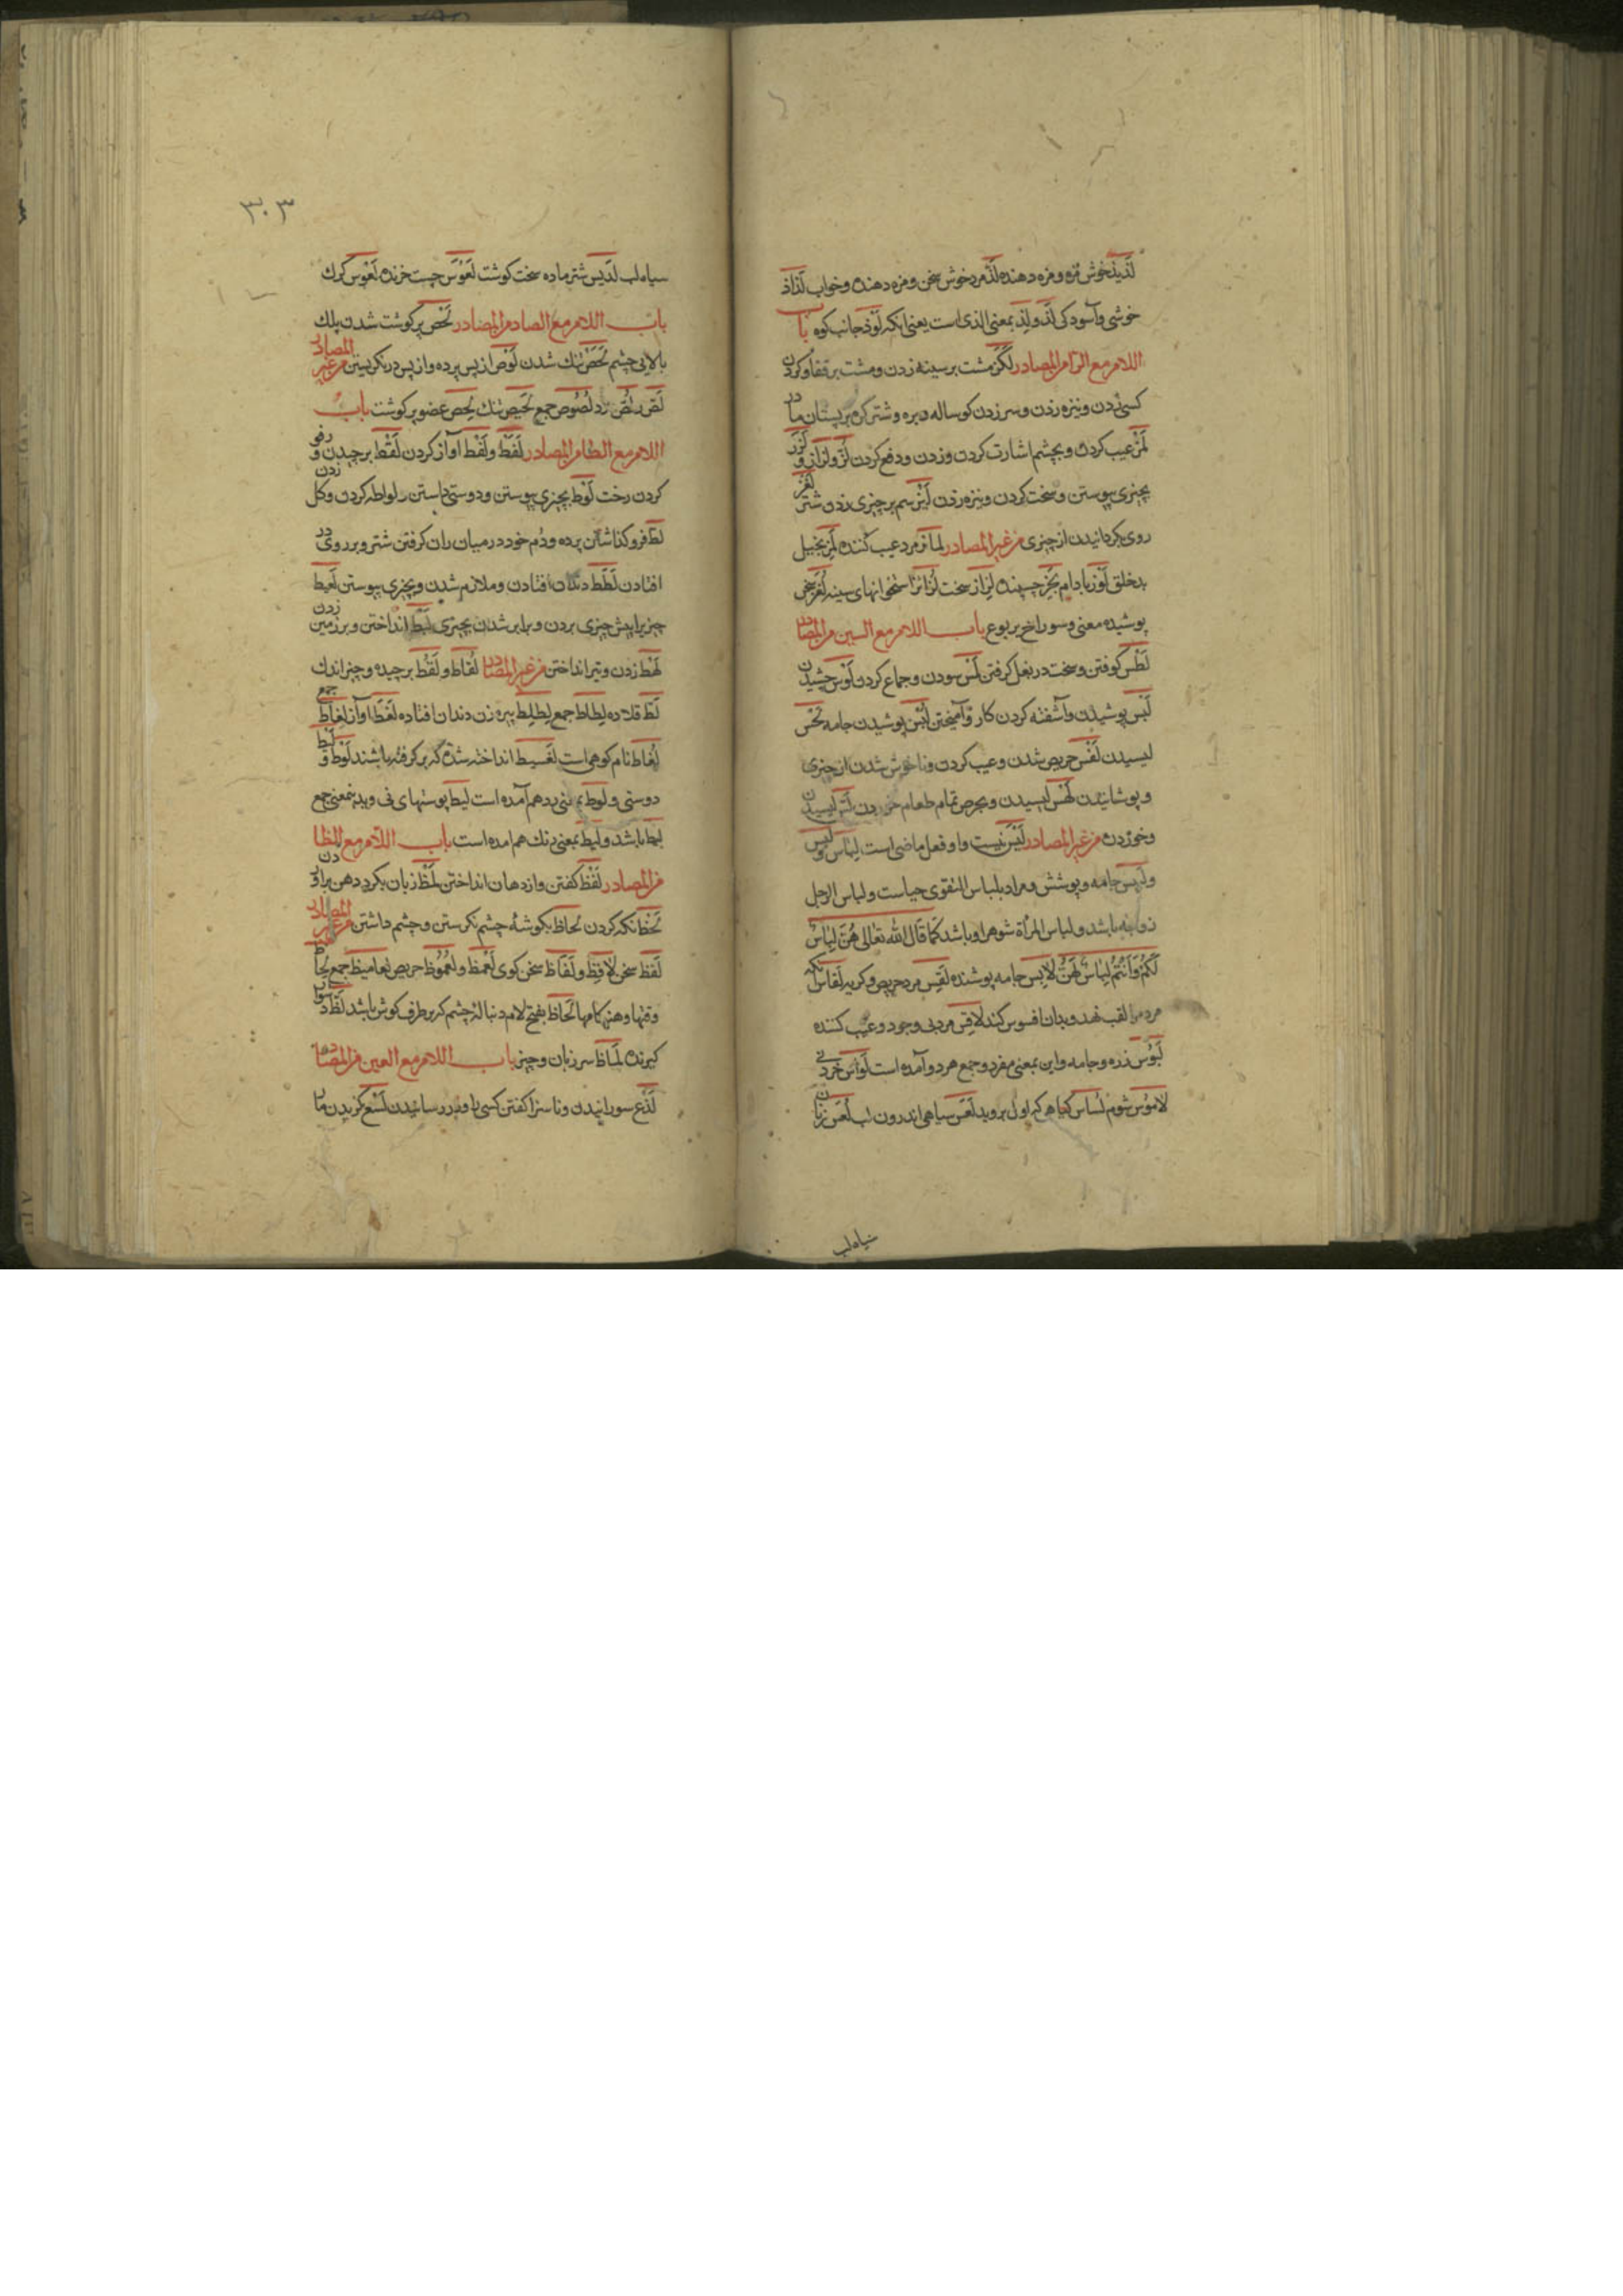 لَذیذ خوش مزه و مزه دهنده لَذّ مرد خوش سخن و مزه دهنده و خواب لَذاذ
خوشی و آسودکی لَذ و لِذ بمعنی الذی است یعنی انکه لَوْذ جانب کوه باب
اللام مع الزا من المصادر لَکْز مشت بر سینه زدن و مشت بر قفا و کردن
کسی زدن و نیزه زدن و سر زدن کوساله و بره و شتر کره بر پستان مادر
لَمْز عیب کردن و بچشم اشارت کردن و زدن و دفع کردن لَزّ و لزاز و لَزَز
بچیزی پیوستن و سخت کردن و نیزه زدن لَتْز سم بر چیزی زدن شتر لَغْز
روی بکردانیدن از چیزی من غیر المصادر لماز مرد عیب کننده لَحِز بخیل
بدخلق لَوْز بادام لَجِز چسپنده لِزاز سخت لَزائز استخوانهای سینه لُغَز سخن
پوشیده معنی و سوراخ یربوع باب اللام مع السین من المصادر
لَطْس کوفتن و سخت در بغل کرفتن لَمْس سودن و جماع کردن لَوْس چشیدن
لَبْس پوشیدن و آشفته کردن کار و آمیختن لُبْس پوشیدن جامه لَحْس
لیسیدن لَقَس حریص شدن و عیب کردن و ناخوش شدن از چیزی
و پوشانیدن لَهْس لیسیدن و بحرص تمام طعام خوردن لَسّ لیسیدن
و خوردن من غیر المصادر لَیْسَ نیست و او فعل ماضی است لِباس و لِبْس
و لَبِیس جامه و پوشش و مراد بلباس التقوی حیاست و لباس الرجل
زوجه باشد و لباس المرأة شوهر او باشد کَمَا قَالَ اللّٰه تعالی هُنَّ لِبَاسٌ
لَکُمْ وَاَنْتُمْ لِبَاسٌ لَهُنَّ لَابِس جامه پوشنده لَقِس مرد حریص و کریه لَقّاس آنکه
مردم را لقب نهد و بدان افسوس کند لَاقِس مرد بی وجود و عیب کننده
لَبُوْس زره و جامه و این بمعنی مفرد و جمع هر دو آمده است لَواس خردنی
لاموْس شوم لُساس کیاهی که اول بروید لَعَس سیاهی اندرون لب لُعس زنان
سیاه لب
۳۰۳
سیاه لب لَدِیس شتر ماده سخت کوشت لَعْوَس چست خرنده لَغْوَس کرک
باب اللام مع الصاد من المصادر لَخَص پر کوشت شدن پلک
بالایی چشم لَحَص تنک شدن لَوْص از پس پرده و از پس در نکریستن من غیر المصادر
لَصّ و لُصّ دزد لُصُوص جمع لَحِیص تنک لَخِص عضو پر کوشت باب
اللام مع الطا من المصادر لَغَط و لَغْط آواز کردن لَقْط برچیدن و رفو
کردن رخت لَوْط بچیزی پیوستن و دوستی داستن و لواطه کردن و کل زدن
لَطّ فرو کذاشتن پرده و دُم خود در میان ران کرفتن شتر و بر روی در
افتادن لَطَط دندان افتادن و ملازم شدن و بچیزی پیوستن لَعْط
چیزیرا پیش چیزی بردن و برابر شدن بچیزی لَبْط انداختن و بر زمین زدن
لَهْط زدن و تیر انداختن من غیر المصادر لُقاط و لَقَط برچیده و چیز اندک
لَطّ قلاده لِطاط جمع لِطلِط پیره زن دندان افتاده لَغَط آواز لغاط جمع
لُغاط نام کوهی است لَقِیط انداخته شده که برکرفته باشند لَوْط و لَیْط
دوستی و لوط بمعنی رد هم آمده است لیط پوستهای نی و بمعنی جمع
لیطه باشد و لیط بمعنی رنک هم امده است باب اللام مع الظا
من المصادر لَفْظ کفتن و از دهان انداختن لَمْظ زبان بکرد دهن بر اوردن
لَحْظ نکه کردن لحاظ بکوشهٔ چشم نکرستن و چشم داشتن من غیر المصادر
لَفْظ سخن لَافِظ و لَفّاظ سخن کوی لَعْمَظ و لُعْمُوْظ حریص لعامیظ جمع
و هنکامها لَحاظ بفتح لام دنبالهٔ چشم که بر طرف کوش باشد لَظّ دشوار
کیرنده لَماظ سر زبان و چیز باب اللام مع العین من المصادر
لَذْع سوزانیدن و ناسزا کفتن کسی را و بدرد رسانیدن لَسْع کزیدن مار